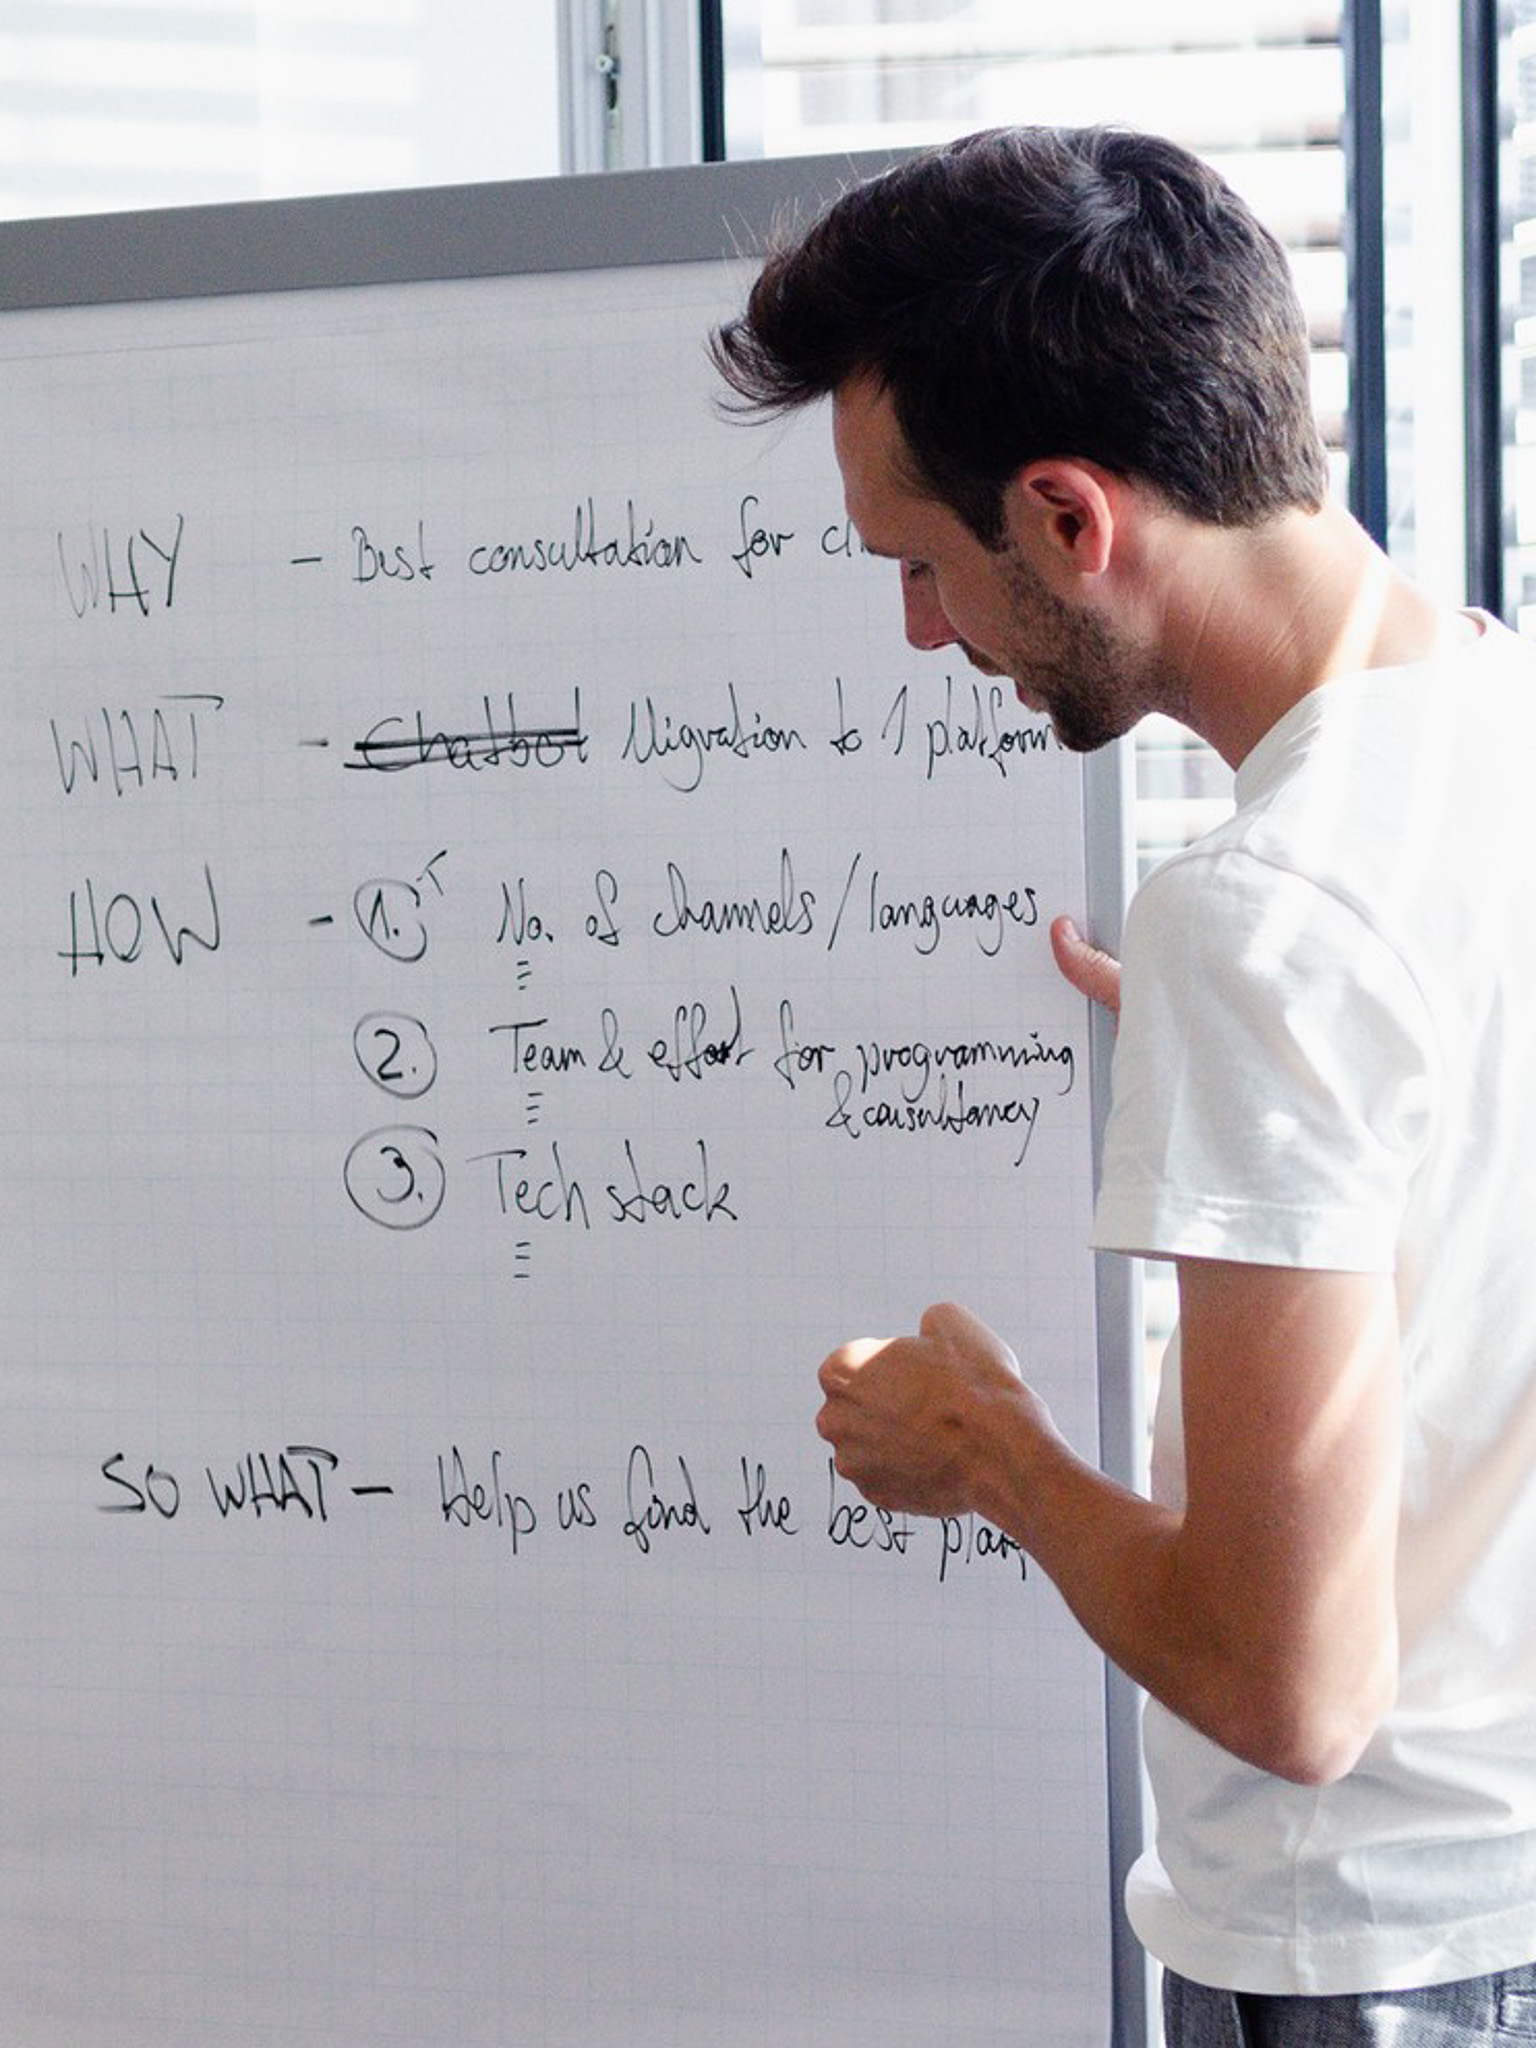 WHY - Best consultation for
WHAT - Chatbot Migration to 1 platform
HOW - 1. T No. of channels/languages
2. Team & effort for programming
& consultancy
3. Tech stack
SO WHAT - Help us find the best